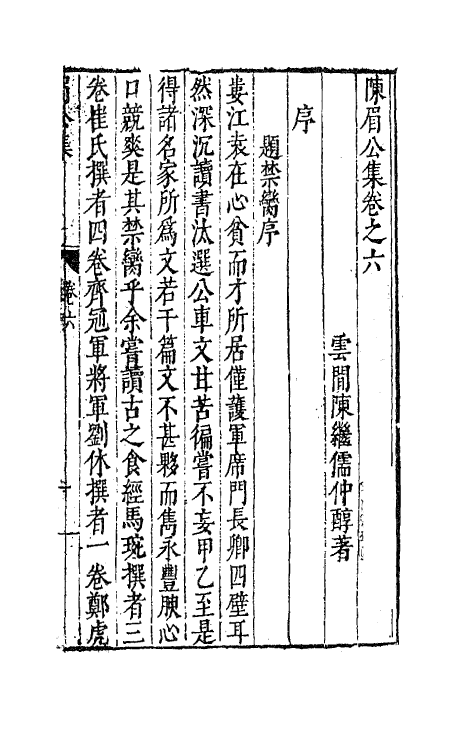 陳眉公集卷之六
雲間陳繼儒仲醇著
序
題禁臠序
婁江袁在心貧而才所居僅護軍席門長卿四壁耳
然深沉讀書汰選公車文甘苦徧嘗不妄甲乙至是
得諸名家所爲文若干篇文不甚夥而雋永豐腴心
口競爽是其禁臠乎余嘗讀古之食經馬琬撰者三
卷崔氏撰者四卷齊冠軍將軍劉休撰者一卷鄭虎
眉公集
卷六